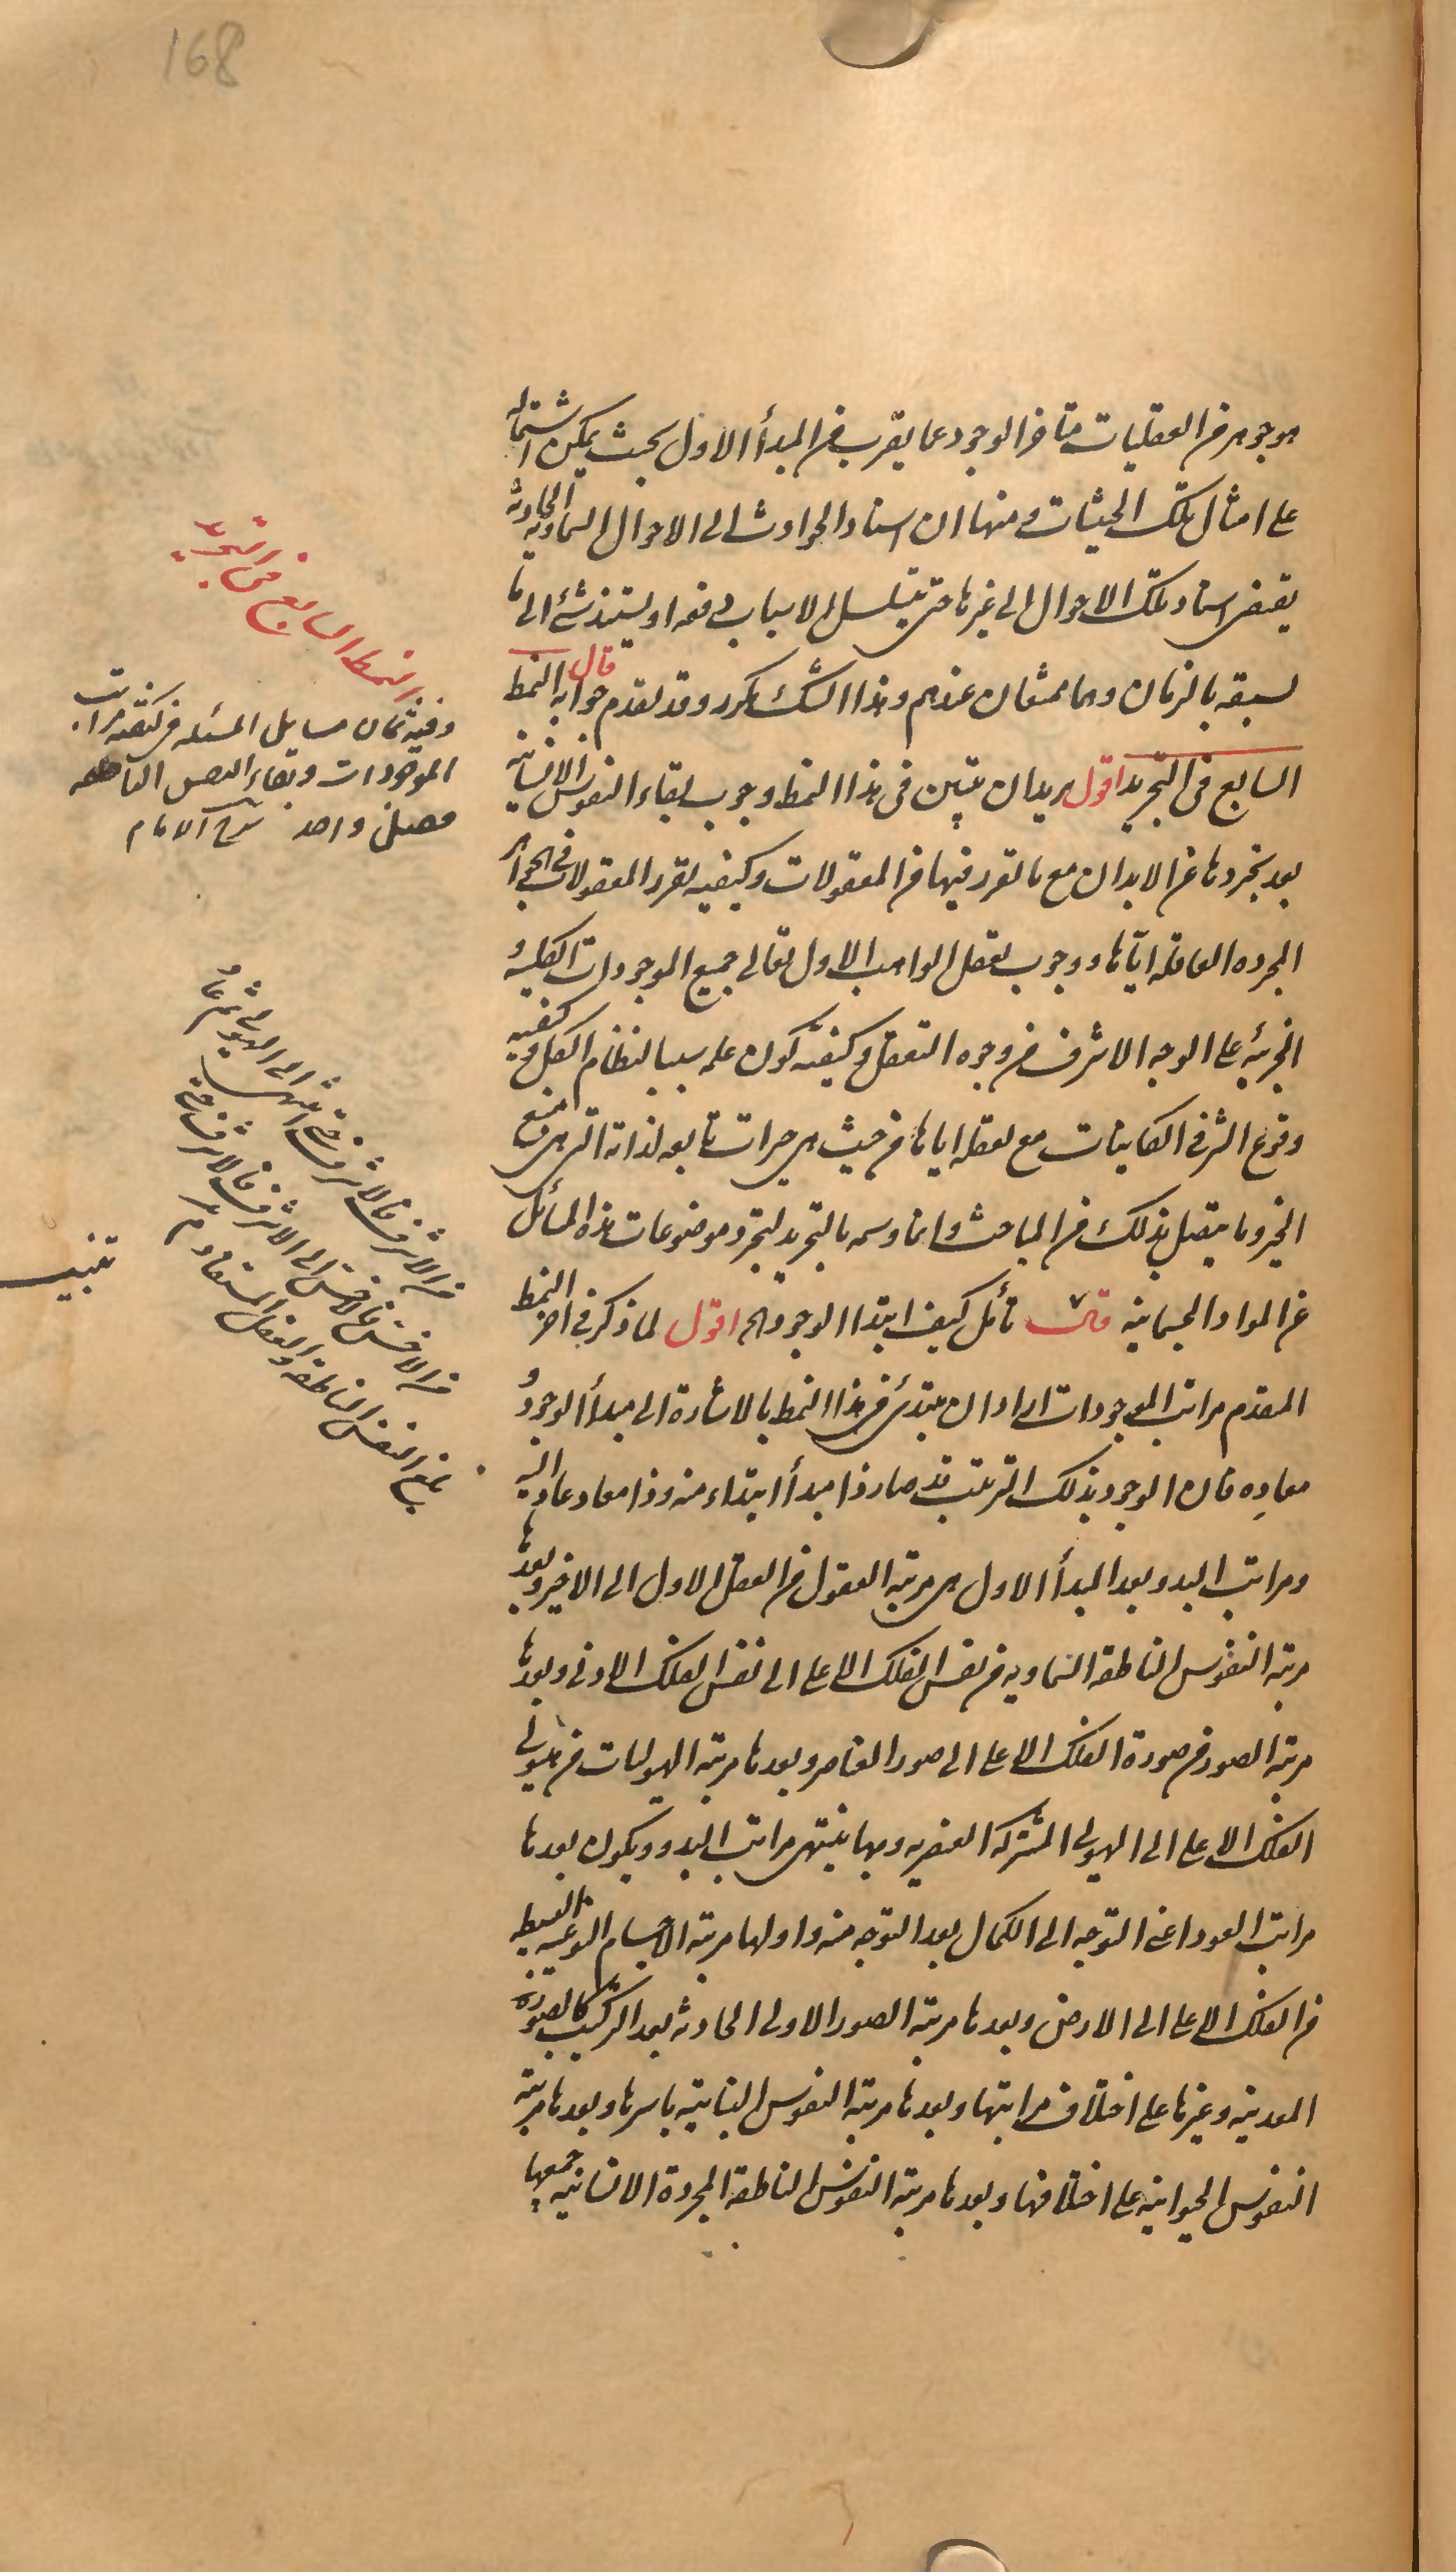 168
هو جوهر من العقليات متاخر الوجود عما يقرب من المبدأ الاول بحيث يمكن اشتماله
على امثال تلك الحيثات ومنها ان اسناد الحوادث الى الاحوال السماوية الحادثة
يقتضى اسناد تلك الاحوال الى غيرها حتى يتسلسل الاسباب دفعة او يستند شئ الى ما
يسبقه بالزمان وهما ممتنعان عندهم وهذا الشك مكرر وقد تقدم جوابه قال النمط
السابع فى التجريد اقول يريد ان يبين فى هذا النمط وجوب بقاء النفوس الانسانية
بعد تجردها عن الابدان مع ما تقرر فيها من المعقولات وكيفية تقرر المعقولات فى الجواهر
المجردة العاقلة اياها ووجوب تعقل الواجب الاول تعالى جميع الموجودات الكلية و
الجزئية على الوجه الاشرف من وجوه التعقل وكيفية كون علمه سببا لنظام الكل وكيفية
وقوع الشر فى الكاينات مع تعقله اياها من حيث هى خيرات تابعة لذاته التى هى منبع
الخير وما يتصل بذلك من المباحث وانما وسمه بالتجريد لتجرد موضوعات هذه المسائل
عن المواد الجسمانية قال تأمل كيف ابتدا الوجود الخ اقول لما ذكر فى اخر النمط
المقدم مراتب الموجودات اراد ان يبتدئ فى هذا النمط بالاشارة الى مبدأ الوجود و
معاده فان الوجود بذلك الترتيب قد صار ذا مبدأ ابتداء منه وذا معاد عاد اليه
ومراتب البدو بعد المبدأ الاول هى مرتبة العقول من العقل الاول الى الاخير وبعدها
مرتبة النفوس الناطقة السماوية من نفس الفلك الاعلى الى نفس الفلك الادنى وبعدها
مرتبة الصور من صورة الفلك الاعلى الى صور العناصر وبعدها مرتبة الهيوليات من هيولى
الفلك الاعلى الى الهيولى المشتركة العنصرية وبها ينتهى مراتب البدو ويكون بعدها
مراتب العود اعنى التوجه الى الكمال بعد التوجه منه واولها مرتبة الاجسام النوعية البسيطة
من الفلك الاعلى الى الارض وبعدها مرتبة الصور الاولى الحادثة بعد التركيب كالصورة
المعدنية وغيرها على اختلاف مراتبها وبعدها مرتبة النفوس النباتية باسرها وبعدها مرتبة
النفوس الحيوانية على اختلافها وبعدها مرتبة النفوس الناطقة المجردة الانسانية جميعها
النمط السابع فى التجريد
وفيه ثمان مسايل المسئلة فى كيفية مراتب
الموجودات وبقاء النفس الناطقة
فصل واحد شرح الامام
من الاشرف فالاشرف حتى انتهى الى الهيولى ثم عاد
من الاخس فالاخس الى الاشرف فالاشرف حتى
بلغ النفس الناطقة والعقل المستفاد م
تنبيه